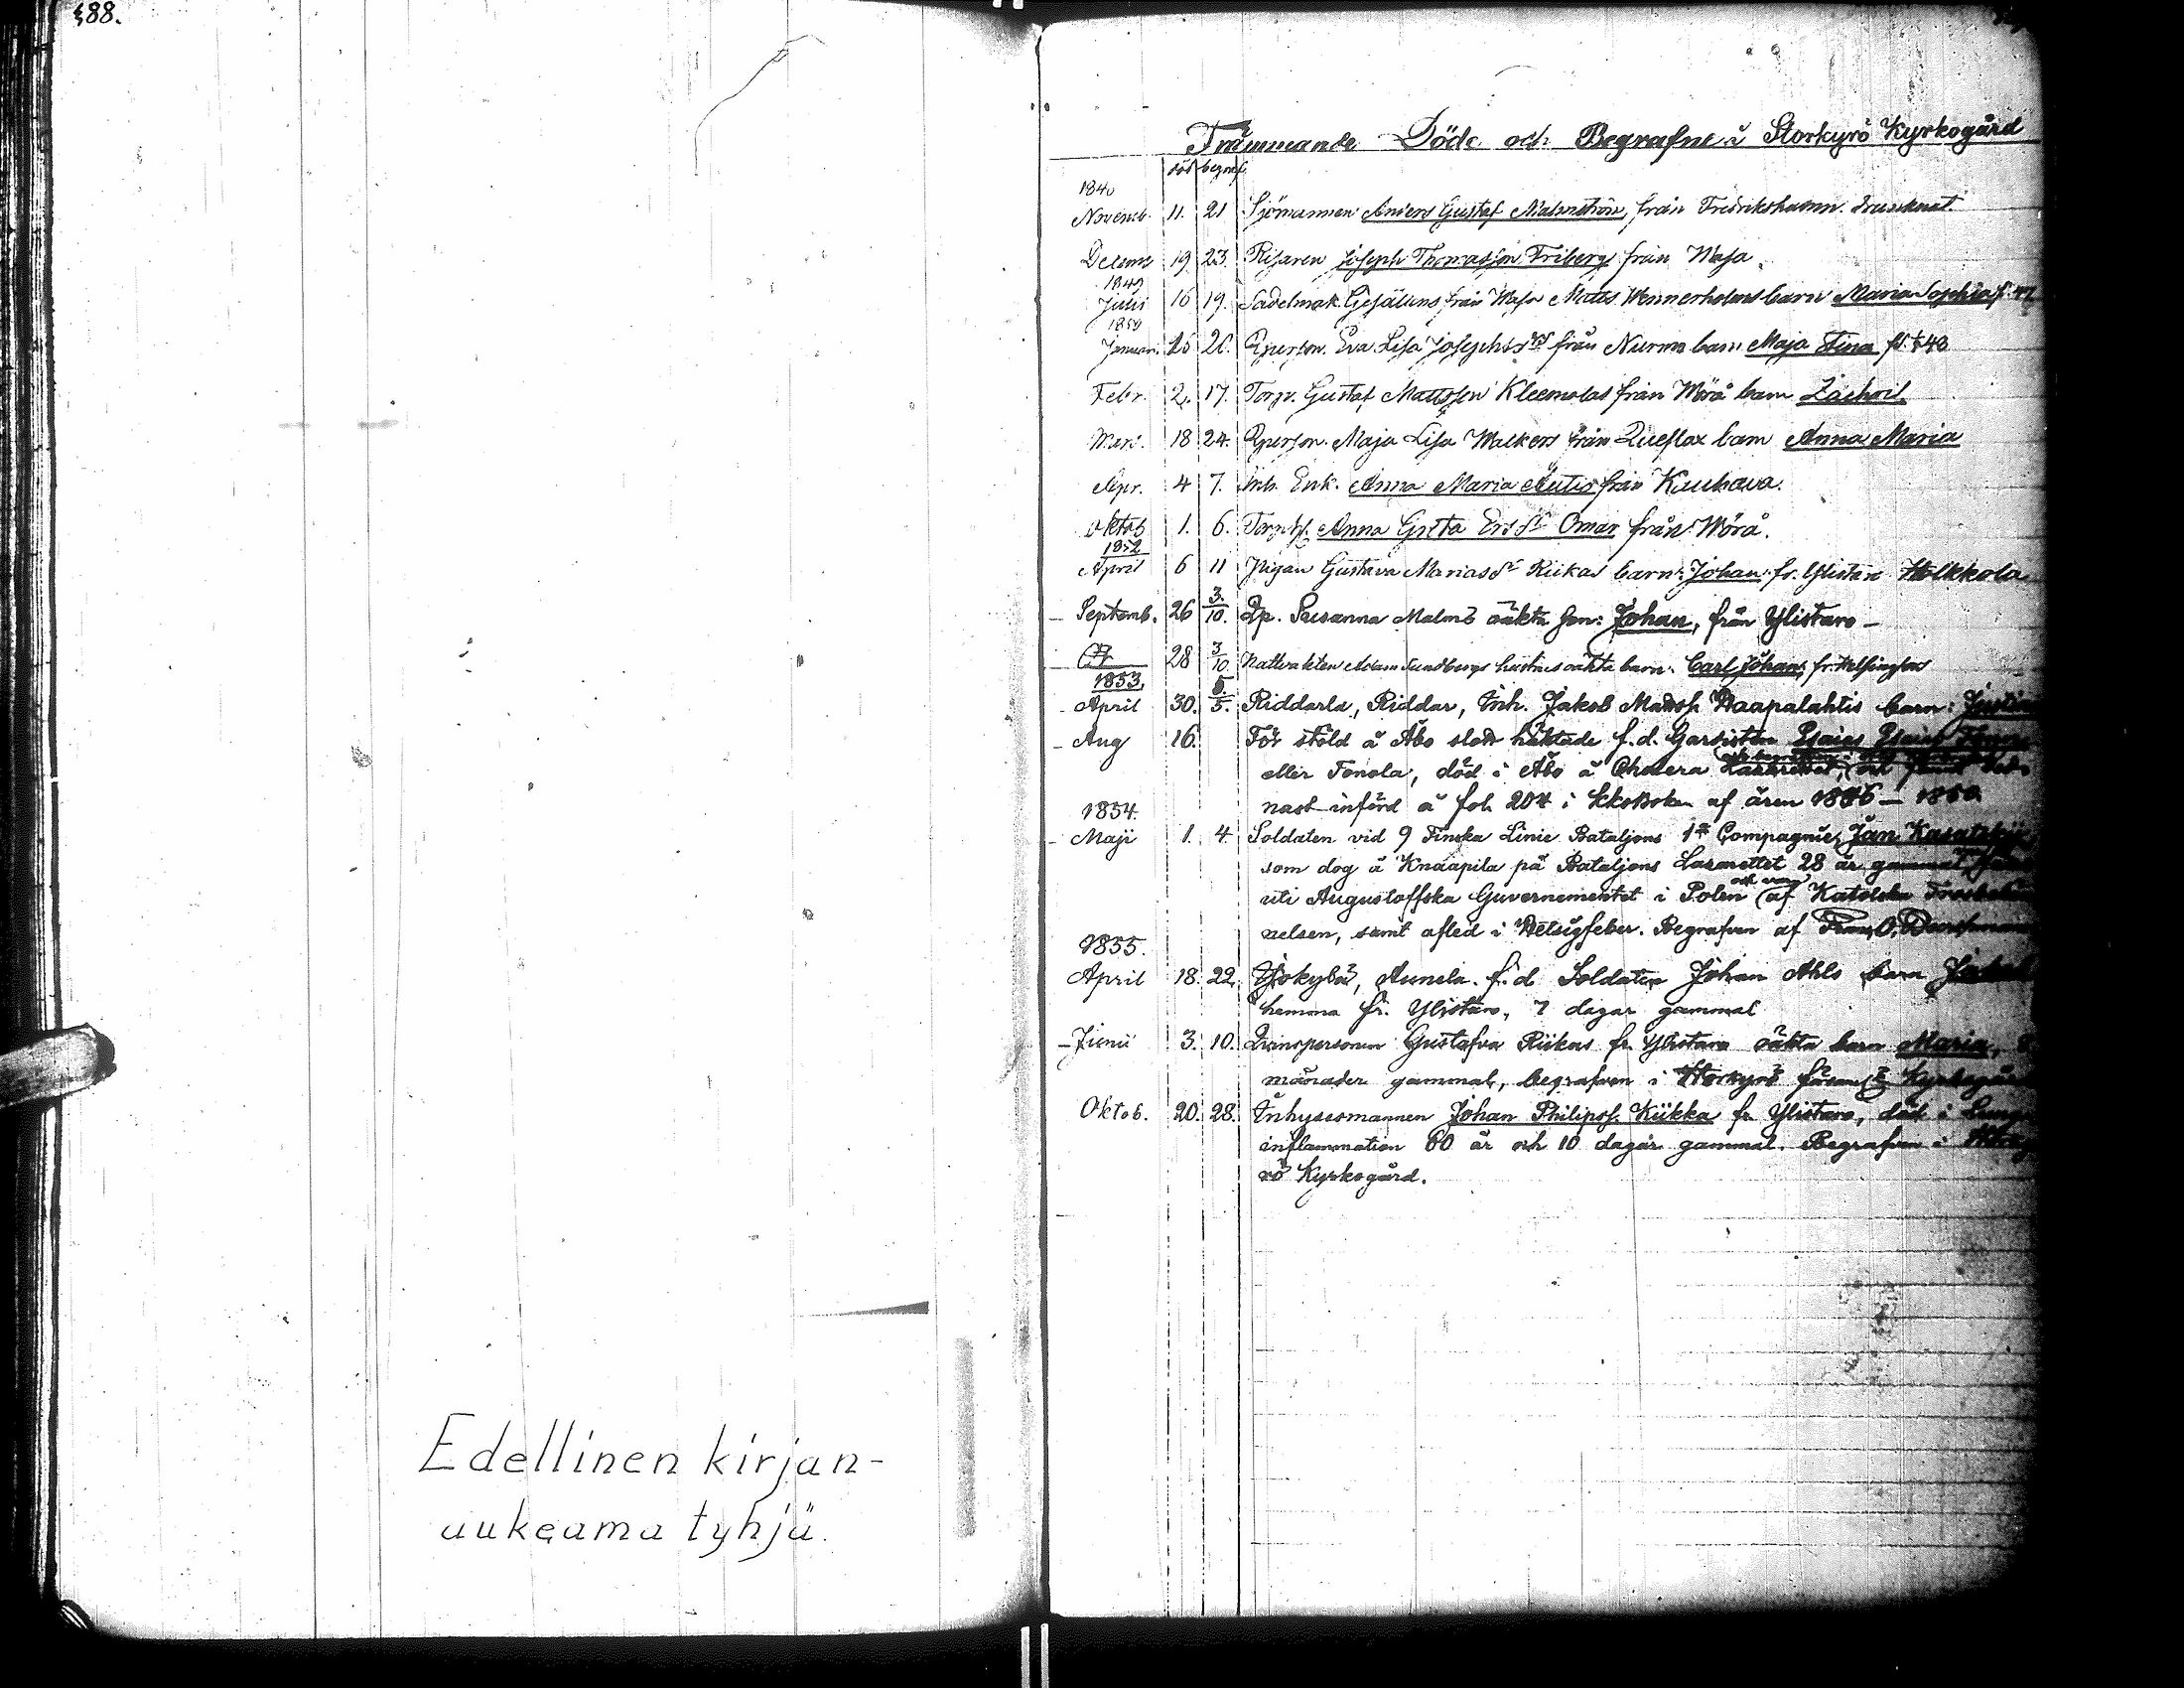 488.
Edellinen kirjan-
aukeama tyhjä.
Främmande Döde och Begrafne å Storkyrö Kyrkogård
död begraf.
1840
Novemb. 11. 21 Sjömannen Anders Gustaf Malmström, från Fredrikshamn. drunknat.
Decemb 19 23. Risaren Joseph Thomasson Friberg från Wasa.
1849
Julii 16 19. Sadelmak. Gesällens från Wasa Matts Wennerholms barn Maria Sophia f. 47
1850
Januari. 15 20. Qperson. Eva Lisa Josephsdr från Nurmo barn Maja Stina fd. 48
Febr. 2. 17. Torp. Gustaf Mattsson Kleemolas från Wörå barn Zachris
Mars. 18 24. Qperson. Maja Lisa Walkers från Queflax barn Anna Maria
Apr. 4 7. Inh. Enk. Anna Maria Autio från Kauhava.
Oktob 1. 6. Anna Greta Ersdr Omar från Wörå.
1852
April 6 11 Pigan Gustava Mariasdr Riikas barn: Johan fr. Ylistaro Holkkola
Septemb. 26 3/10. Qp. Susanna Malms oäkta son: Johan, från Ylistaro
28 3/10 Nattvakten Adam Sundbergs hustrus oäkta barn: Carl Johan, fr. Helsingfors
1853.
April 30. 5/5. Riddarla, Riddar, Inh. Jakob Mattss. Haapalahtis barn:
Aug 16. För stöld å Åbo slott häktade f.d. Gardisten Esaias
eller Fonola, död i Åbo å Cholera
nast införd å fol. 204 i Kkoboken af åren 1846 – 1850
1854.
Maji 1. 4. Soldaten vid 9 Finska Linie Bataljons 1sta Compagnie, Jan
som dog å Knaapila på Bataljons Lazarettet 28 år gammal,
uti Augustoffska Guvernementet i Polen och var af Katolska
nelsen, samt afled i Nelsigfeber. Begrafven af
1855.
April 18. 22. Jokybÿ, Aunela. f.d. Soldaten Johan Ahls barn
hemma fr. Ylistaro, 7 dagar gammal
Junii 3. 10. Qvinspersonen Gustafva Riikas fr. Ylistaro oäkta barn Maria,
månader gammal, begrafven i Storkyrö Kyrkogård
Oktob. 20. 28. Inhysesmannen Johan Philipss. Kiikka fr. Ylistaro, död i Lung
inflammation 60 år och 10 dagar gammal. Begrafven i
rö Kyrkogård.